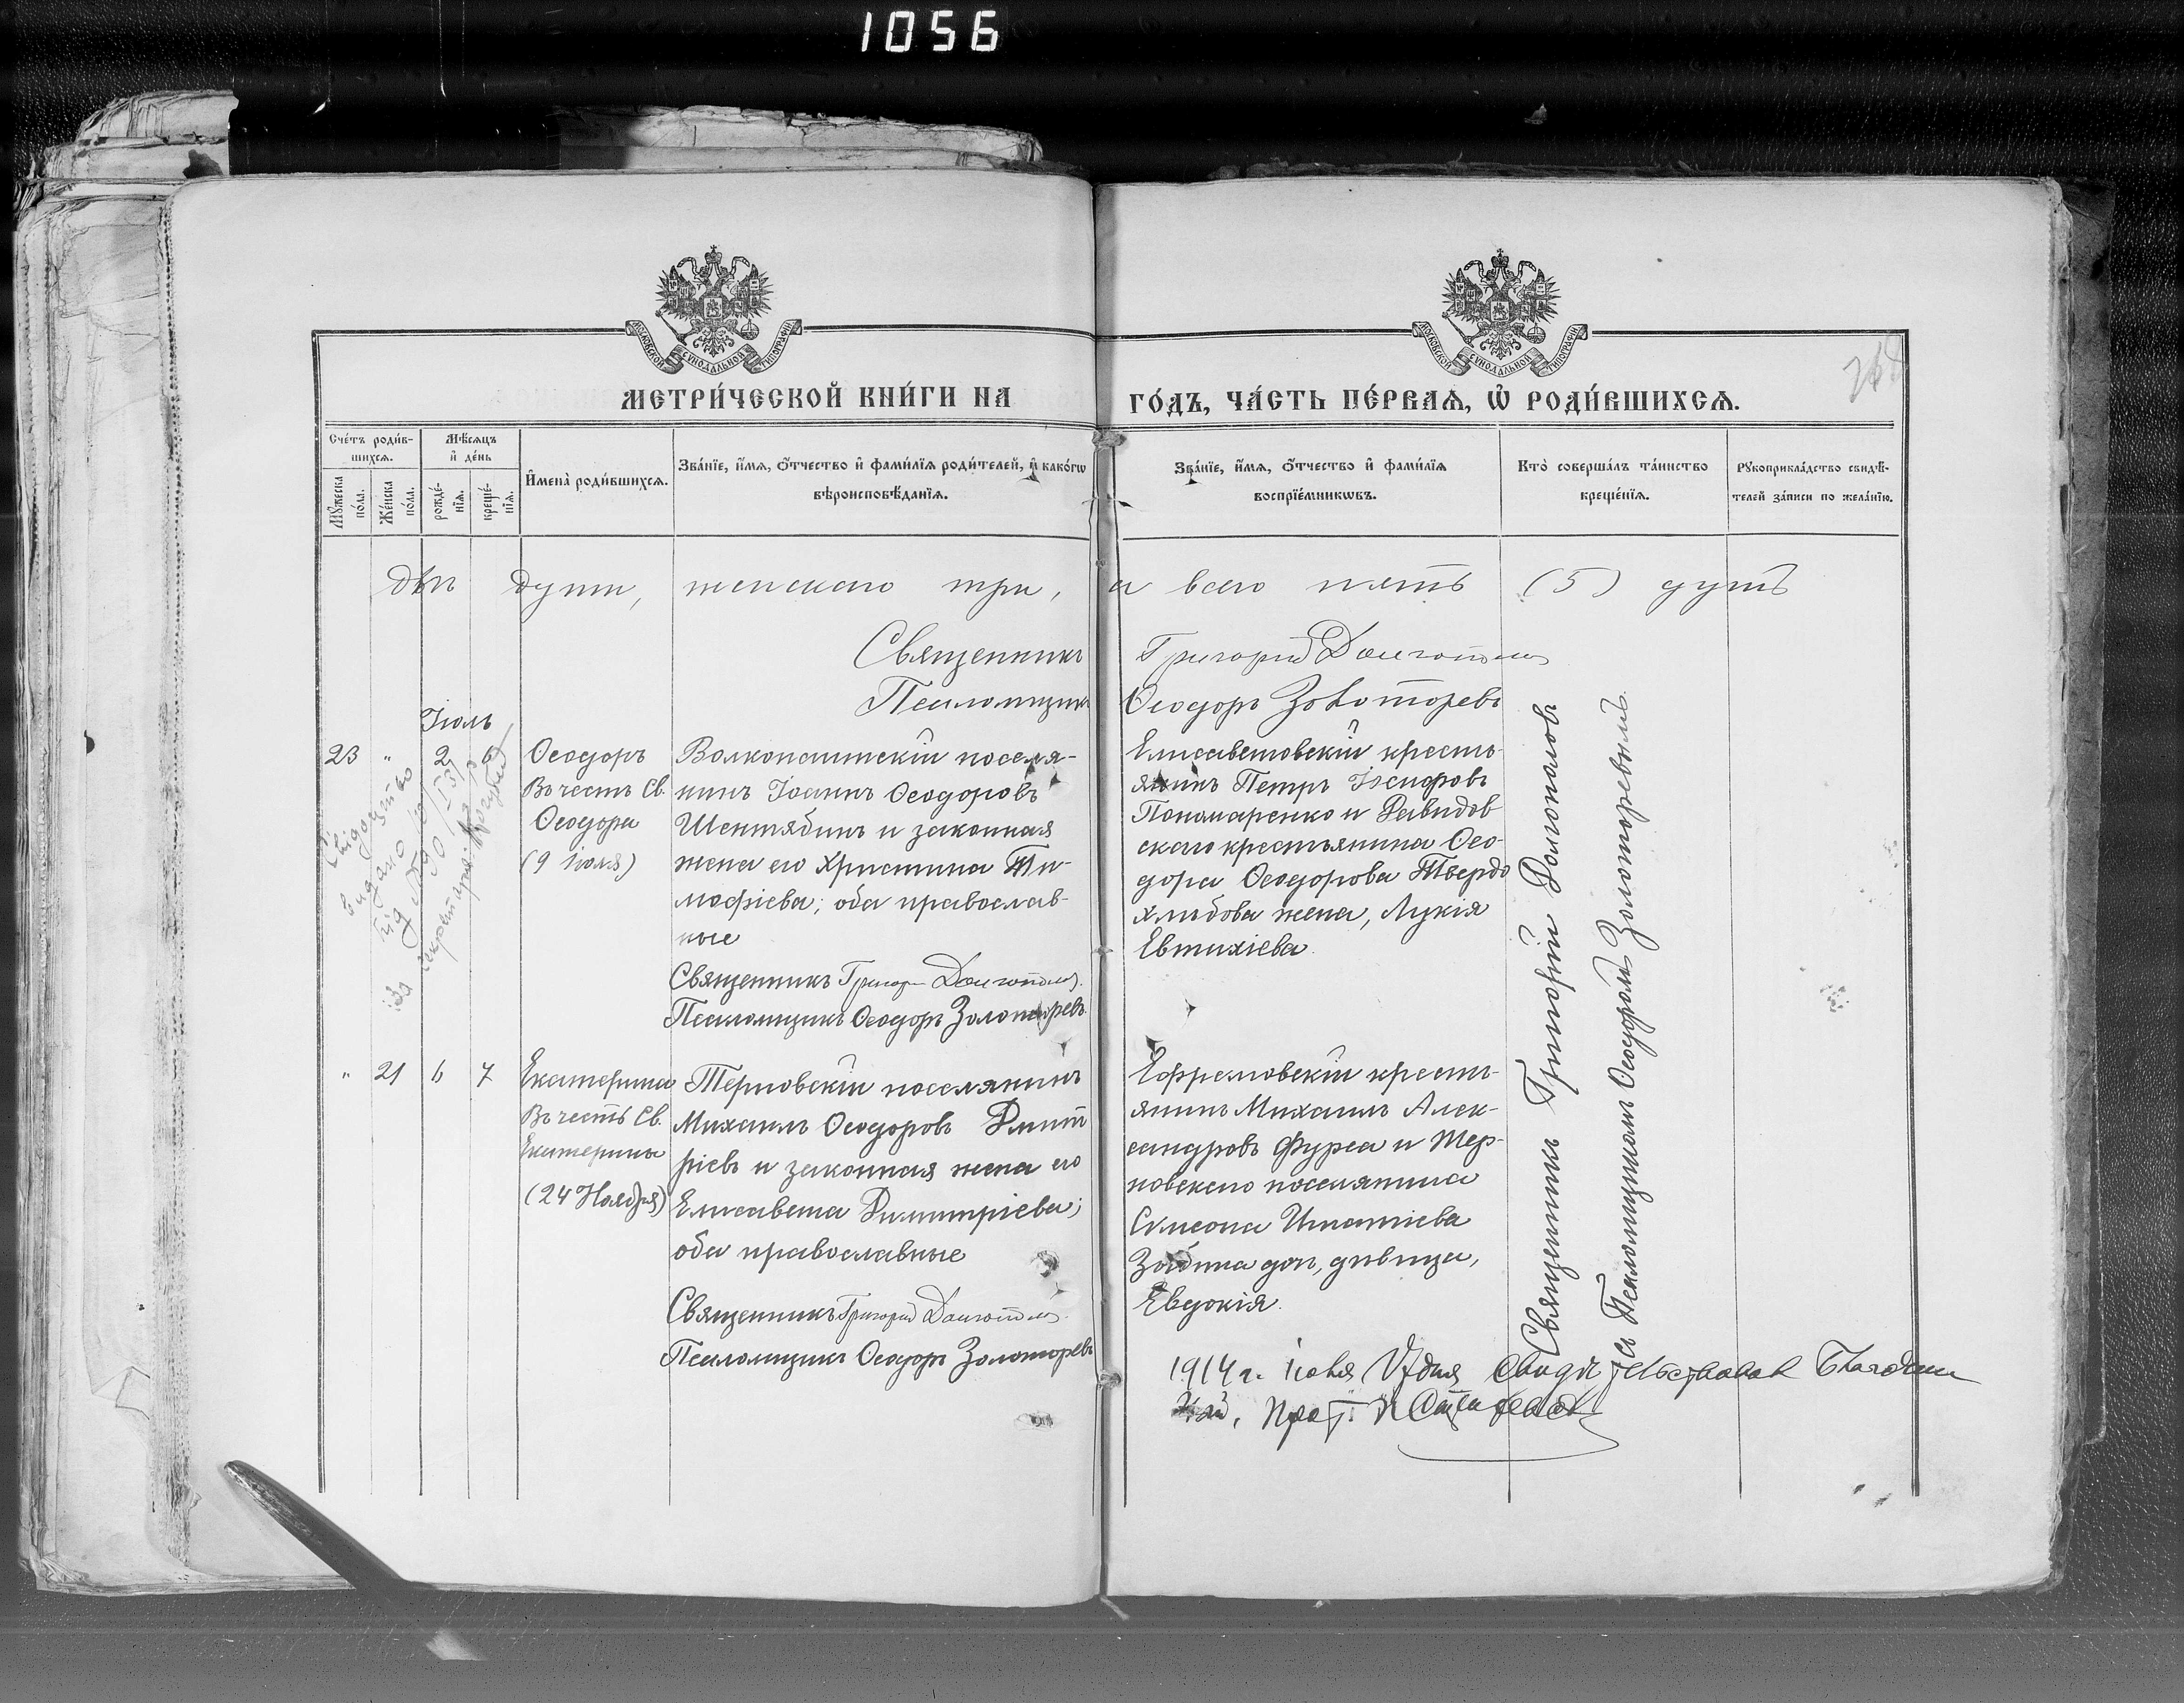 1056
МОСКОВСКОЙ СѴНОДАЛЬНОЙ ТИПОГРАФИИ
МОСКОВСКОЙ СѴНОДАЛЬНОЙ ТИПОГРАФИИ
МЕТРИ́ЧЕСКОЙ КНИ́ГИ НА ГО́ДЪ, ЧА́СТЬ ПЕ́РВАѦ, Ѽ РОДИ́ВШИХСѦ.
Сче́тъ роди́в-
шихсѧ.
Мꙋ́жеска по́ла.
Же́нска по́ла.
Мѣ́сѧцъ и҆ де́нь
рожде́-
нїѧ.
креще́-
нїѧ.
И҆мена̀ роди́вшихсѧ.
Зва́нїе, и҆́мѧ, ѻ҆́тчество и҆ фами́лїѧ роди́телей, и҆ како́гѡ
вѣроисповѣ́данїѧ.
Зва́нїе, и҆́мѧ, ѻ҆́тчество и҆ фами́лїѧ
воспрїе́мникѡвъ.
Кто̀ соверша́лъ та́инство
креще́нїѧ.
Рꙋкоприкла́дство свидѣ́-
телей за́писи по жела́нїю.
двѣ души, женскаго три, а всего пять (5) душъ
Священникъ Григорій Долгополовъ
Псаломщикъ Ѳеодоръ Золоторевъ
Іюль
23 " 2 6
Ѳеодоръ
Въ честь Св.
Ѳеодора
(9 Іюля)
Волконштскій поселя-
нинъ Іоаннъ Ѳеодоровъ
Шентябинъ и законная
жена его Христина Ти-
мофіева; оба православ-
ные
Священникъ Григорій Долгополовъ.
Псаломщикъ Ѳеодоръ Золоторевъ.
Елисаветовскій кресть-
янинъ Петръ Іосифовъ
Пономаренко и Давидов-
скаго крестьянина Ѳео-
дора Ѳеодорова Твердо
хлѣбова жена, Лукія
Евтихіева.
" 21 6 7
Екатерина
Въ честь Св.
Екатерины
(24 Ноября)
Терновскій поселянинъ
Михаилъ Ѳеодоровъ Димит
ріевъ и законная жена его
Елисавета Димитріева;
оба православные
Священникъ Григорій Долгополовъ.
Псаломщикъ Ѳеодоръ Золоторевъ
Ефремовскій кресть-
янинъ Михаилъ Алек-
сандровъ Фурса и Тер-
новскаго поселянина
Сѵмеона Игнатіева
дочь, дѣвица,
Евдокія.
Священникъ Григорій Долгополовъ
съ Псаломщикомъ Ѳеодоромъ Золоторевымъ.
1914 г. Іюля дня Свидѣтельствовалъ Благочин
ный, Прот.